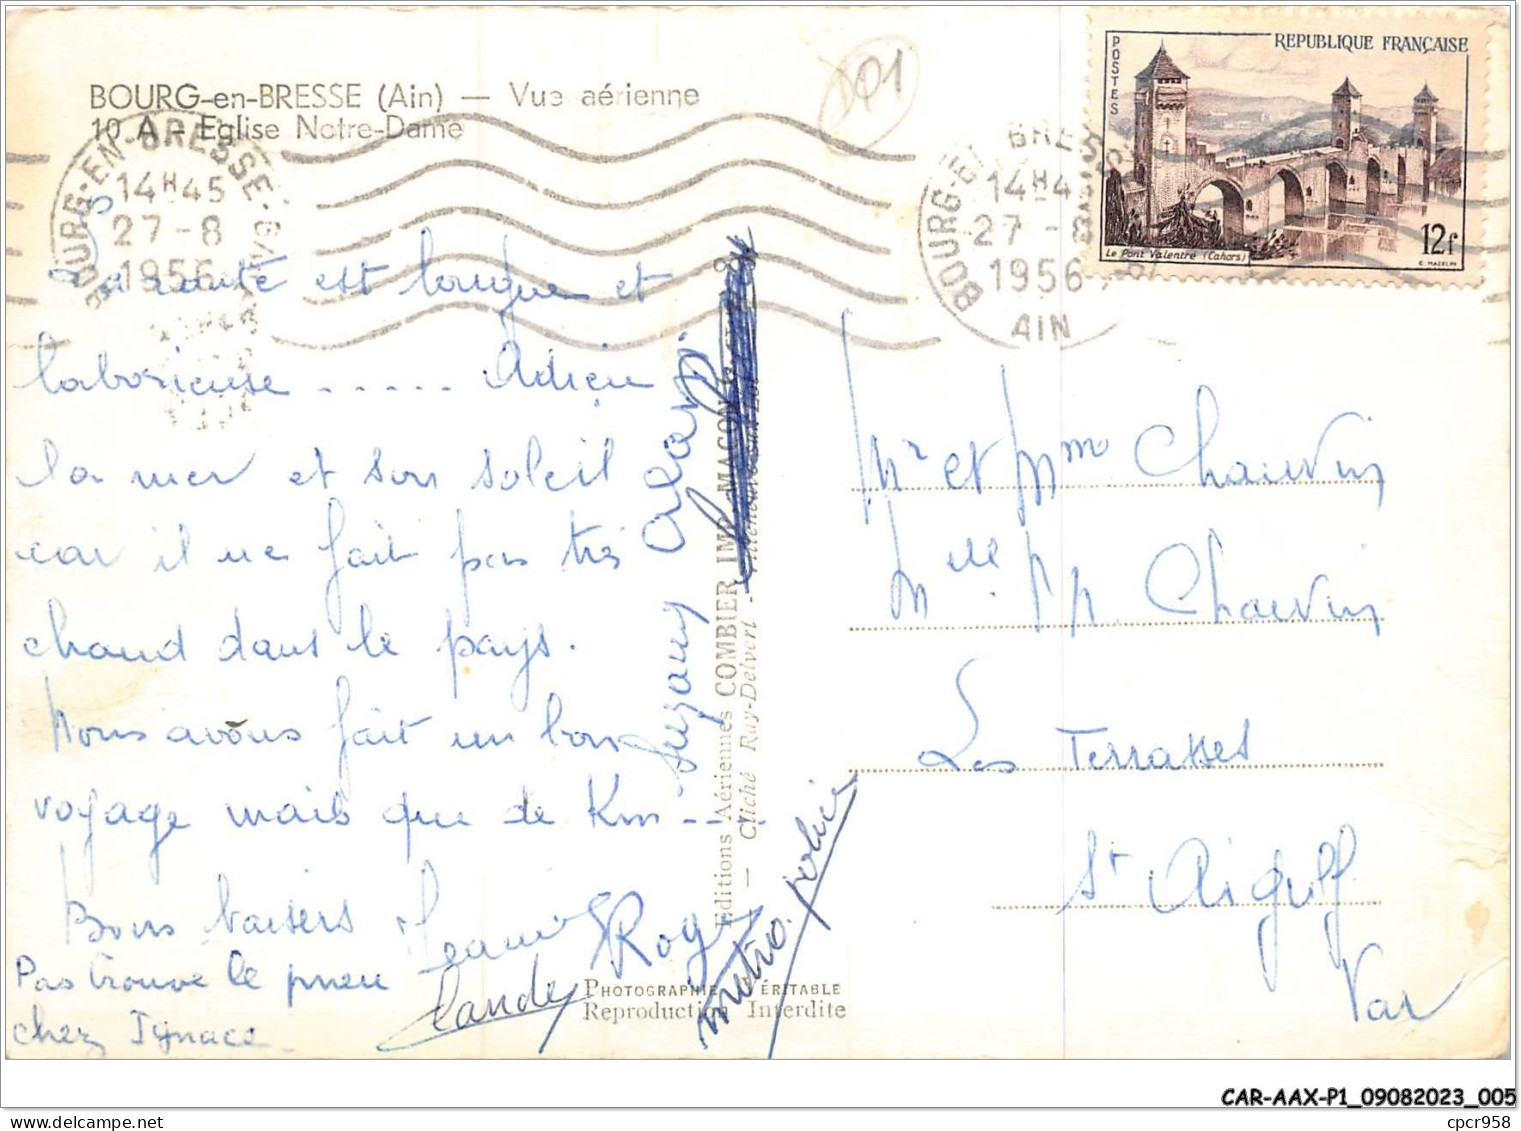 BOURG-en-BRESSE (Ain) — Vue aérienne
10 A - Eglise Notre-Dame
BOURG-EN-BRESSE-GARE
14H45
27-8
1956
D01
BOURG-EN-BRESSE
14H45
27-8
1956
AIN
REPUBLIQUE FRANÇAISE
POSTES
Le Pont Valentré (Cahors)
12f
C. MAZELIN
La route est longue et
laborieuse ...... Adieu
la mer et son soleil
car il ne fait pas très
chaud dans le pays.
Nous avons fait un bon
voyage mais que de Km ...
Bons baisers
Pas trouve le pneu
chez Ignace
Suzany Alain
Rog
Editions Aériennes COMBIER IMP. MACON
Cliché Ray-Delvert
PHOTOGRAPHIE VÉRITABLE
Reproduction Interdite
Mr et Mme Chauvin
Mlle Chauvin
Les Terrasses
St Aigulf
Var
CAR-AAX-P1_09082023_005
cpcr958